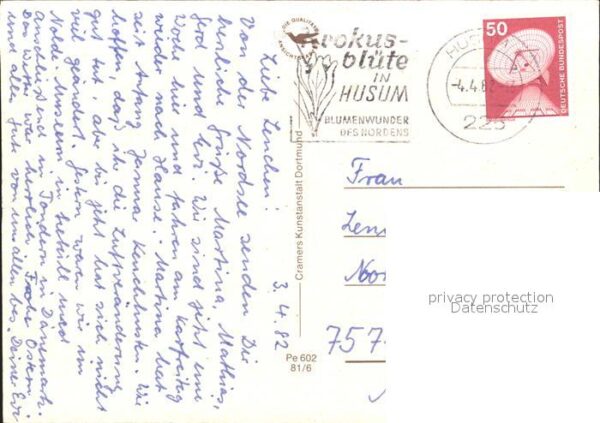 Liebe Lenchen!
Von der Nordsee senden Dir
herzliche Grüße Martina, Mathias,
und Evi. Wir sind jetzt eine
Woche hier und fahren am Karfreitag
wieder nach Hause. Martina hat
seit Anfang Januar Keuchhusten. Wir
hoffen, daß ihr die Luftveränderung
gut tut, aber bis jetzt hat sich nicht
viel geändert. Gestern waren wir im
Nolde-Museum in Seebüll und
anschliesend in Tondern in Dänemark.
Das Wetter war herrlich. Frohe Ostern
und alles Gute von uns allen bes. Deine Evi
3.4.82
DIE QUALITÄTS
ANSICHTS
Krokus-
blüte
IN
HUSUM
BLUMENWUNDER
DES NORDENS
HUSUM
-4.4.82
225
50
DEUTSCHE BUNDESPOST
Cramers Kunstanstalt Dortmund
Pe 602
81/6
Frau
Len
No
757
privacy protection
Datenschutz